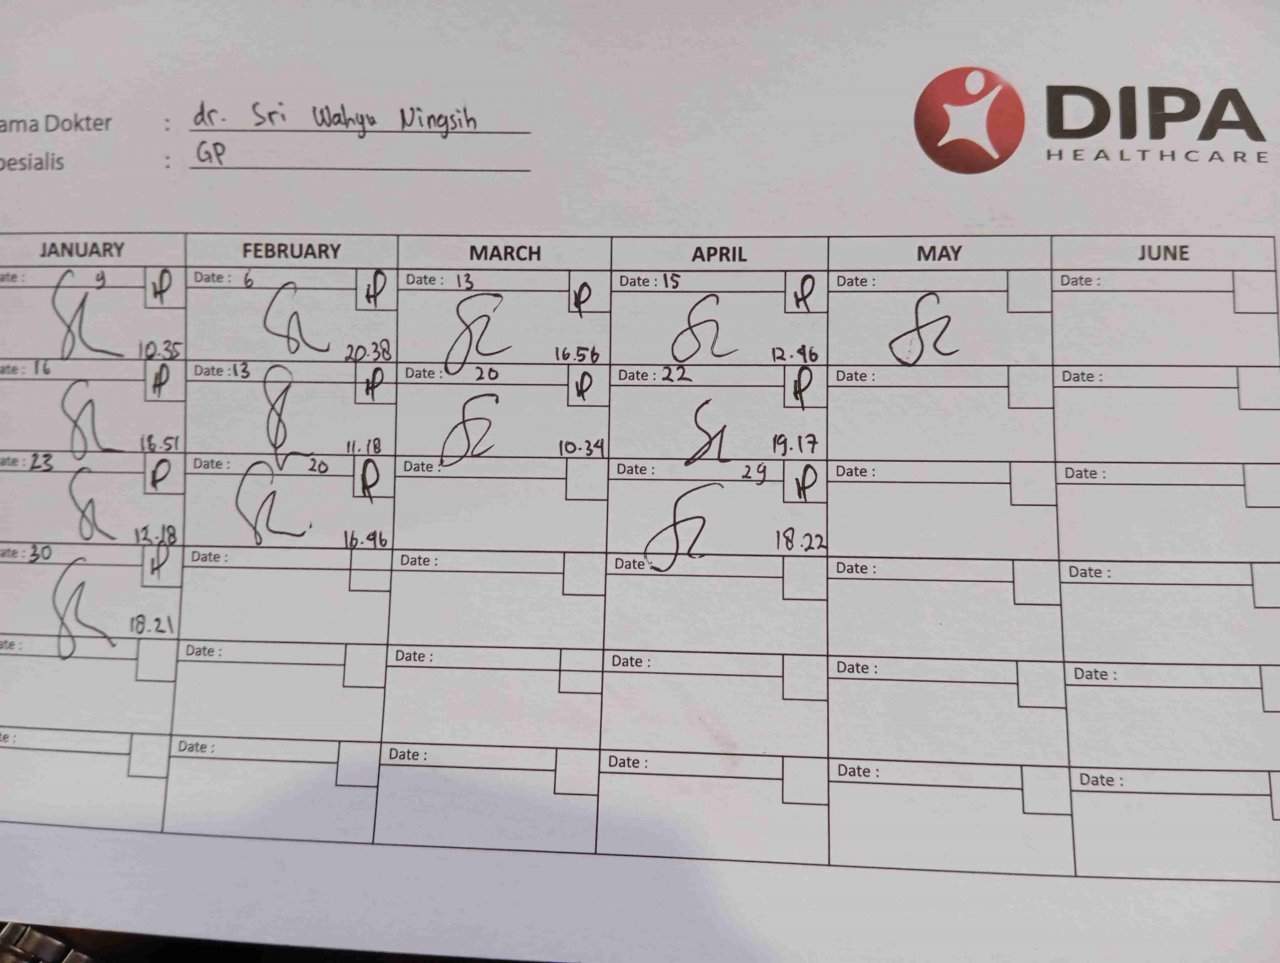 ama Dokter : dr. Sri Wahyu Ningsih
pesialis : GP
DIPA
HEALTHCARE
JANUARY FEBRUARY MARCH APRIL MAY JUNE
ate : 9 Date : 6 Date : 13 Date : 15 Date : Date :
10.35 20.38 16.56 12.46
ate : 16 Date : 13 Date : 20 Date : 22 Date : Date :
16.51 11.18 10.34 19.17
ate : 23 Date : 20 Date : Date : 29 Date : Date :
12.18 16.46 18.22
ate : 30 Date : Date : Date : Date : Date :
18.21
ate : Date : Date : Date : Date : Date :
te : Date : Date : Date : Date : Date :